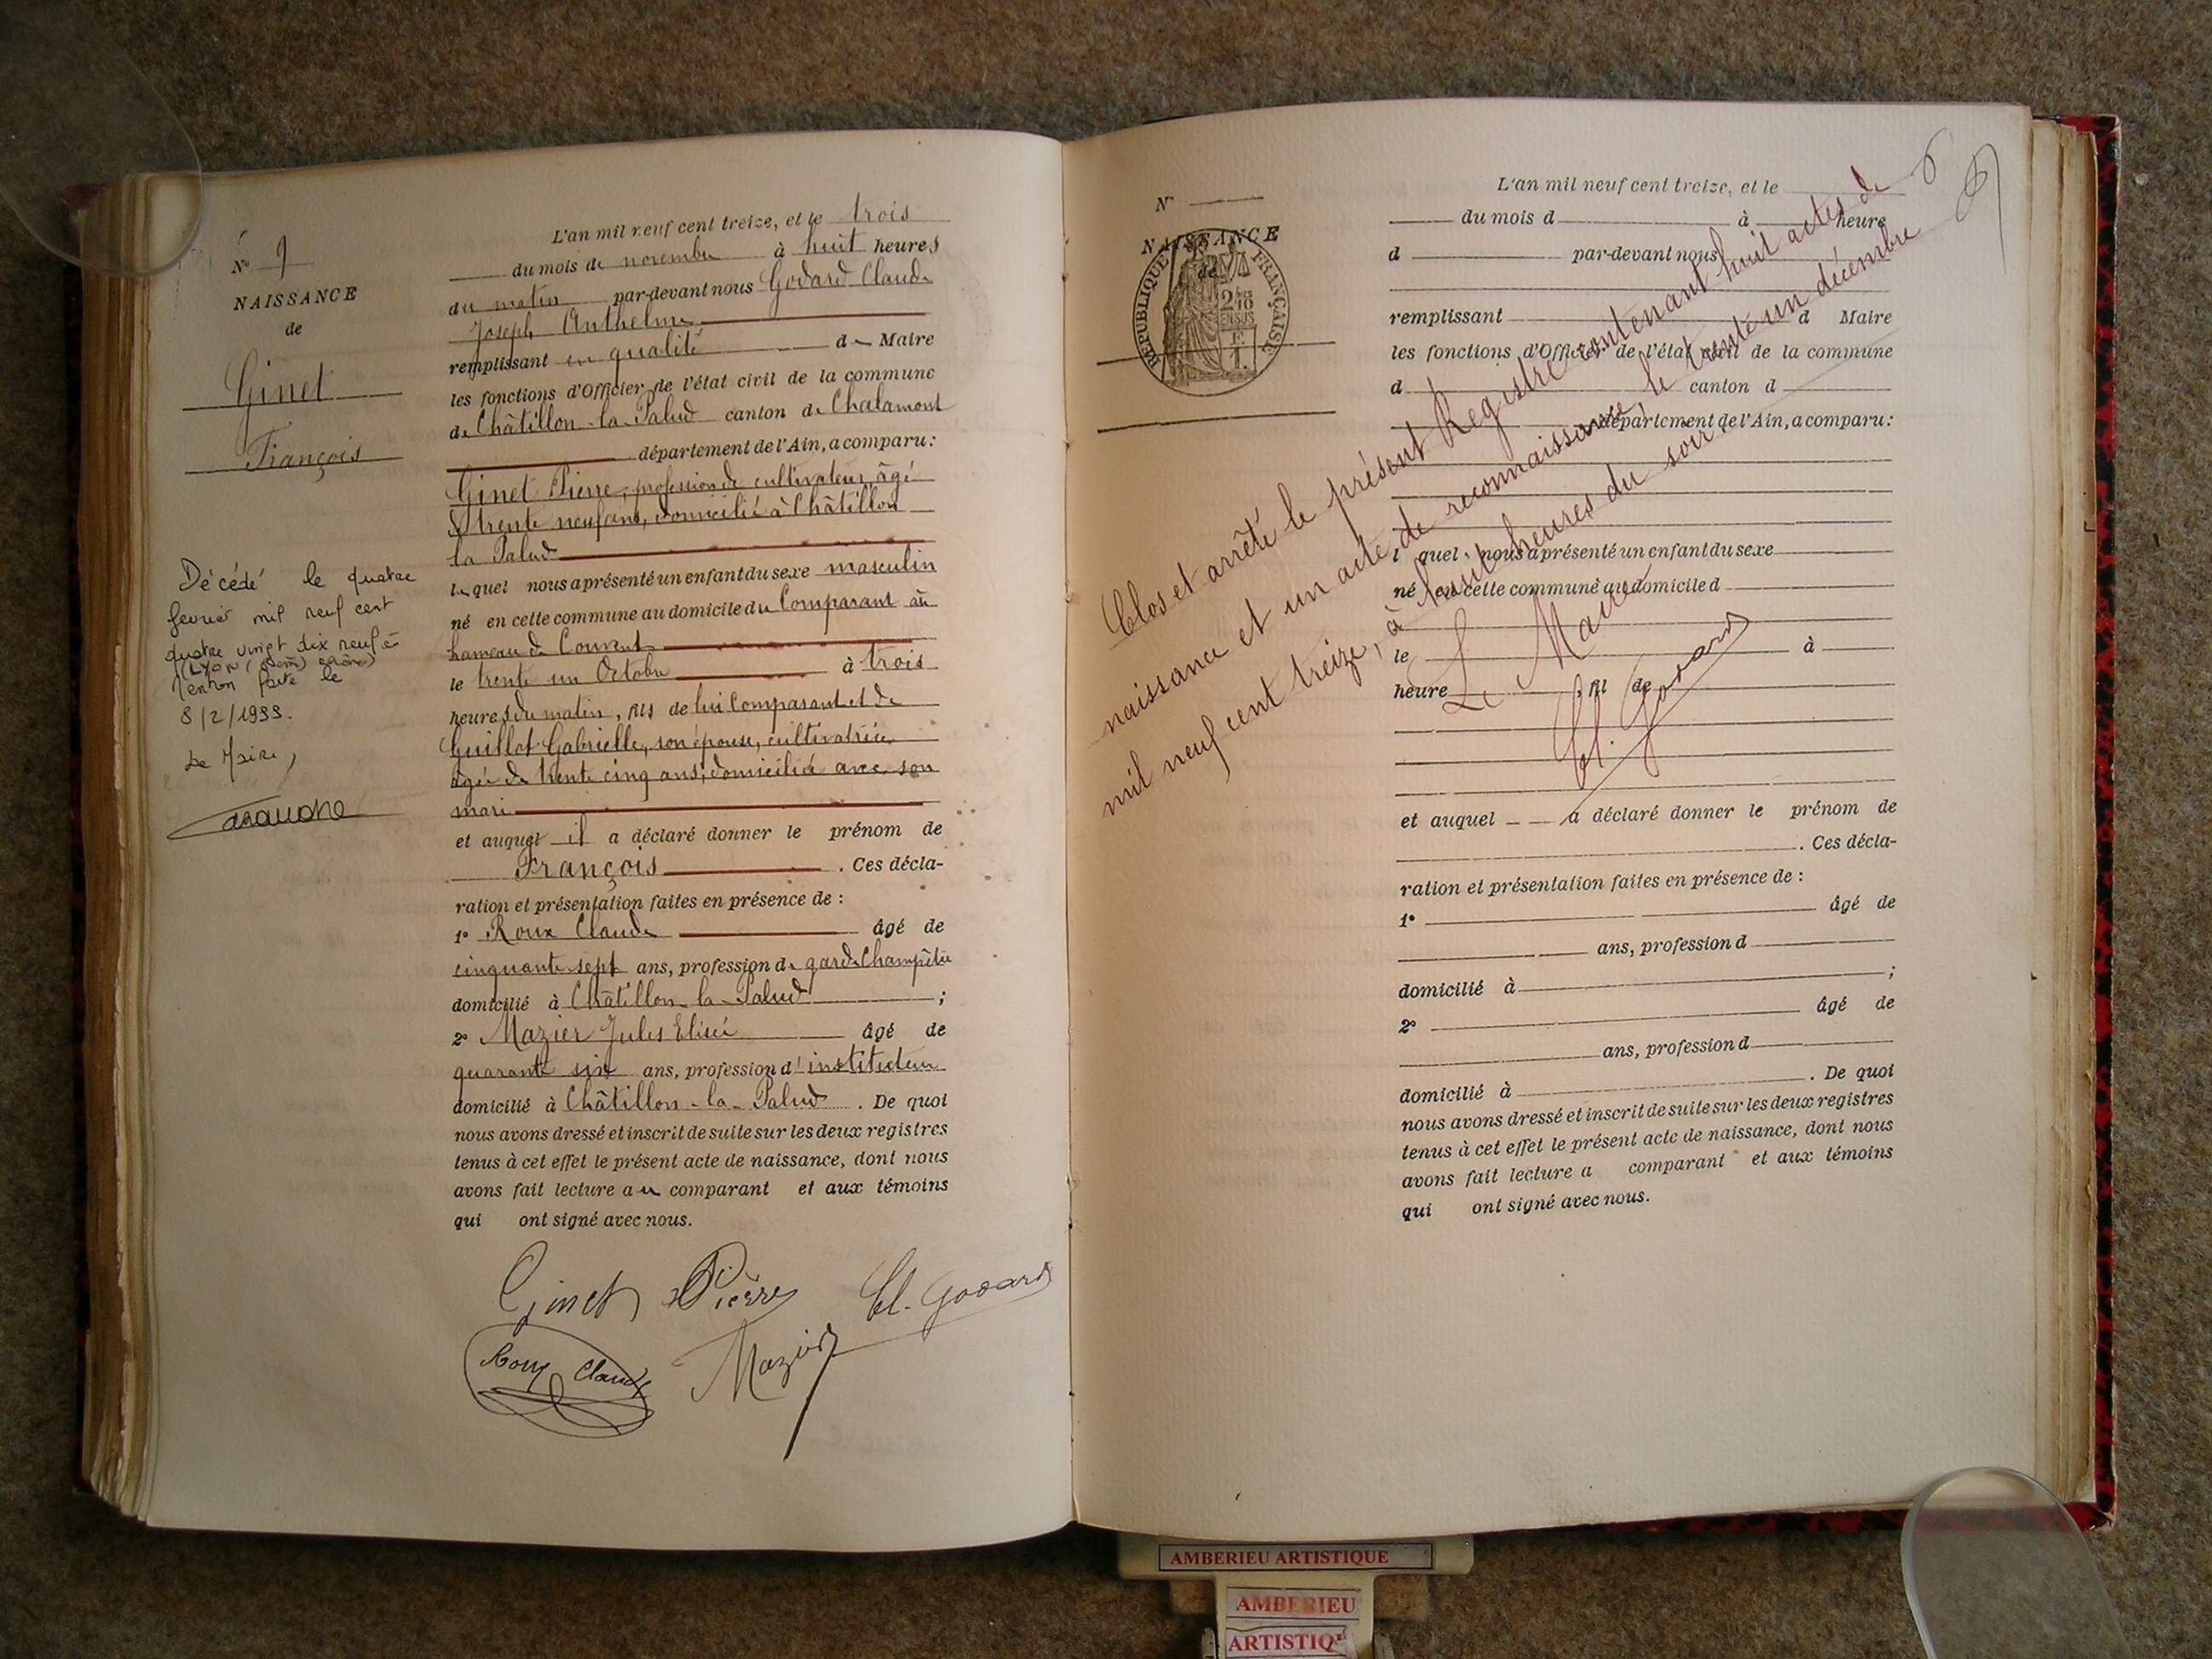 N° 9
NAISSANCE
de
Ginet
François
Décédé le quatre
fevrier mil neuf cent
quatre vingt dix neuf à
(LYON Rhône)
Mention faite le
8/2/1999.
Le Maire,
L'an mil neuf cent treize, et le trois
du mois de novembre à huit heures
du matin par-devant nous Godard Claude
Joseph Anthelme
remplissant en qualité de Maire
les fonctions d'Officier de l'état civil de la commune
de Châtillon-la-Palud canton de Chalamont
département de l'Ain, a comparu :
Ginet Pierre, profession de cultivateur, âgé
de trente neuf ans, domicilié à Châtillon
la Palud
lequel nous a présenté un enfant du sexe masculin
né en cette commune au domicile du Comparant au
hameau de Couvent
le trente un Octobre à trois
heures du matin, fils de lui Comparant et de
Guillot Gabrielle, son épouse, cultivatrice
âgée de trente cinq ans, domiciliée avec son
mari
et auquel il a déclaré donner le prénom de
François. Ces décla-
ration et présentation faites en présence de :
1° Roux Claude âgé de
cinquante sept ans, profession de garde Champêtre
domicilié à Châtillon-la-Palud ;
2° Mazier Jules Elisée âgé de
quarante six ans, profession d'instituteur
domicilié à Châtillon-la-Palud. De quoi
nous avons dressé et inscrit de suite sur les deux registres
tenus à cet effet le présent acte de naissance, dont nous
avons fait lecture au comparant et aux témoins
qui ont signé avec nous.
Ginet Pierre Cl. Godard
Roux Claude Mazier
N°
NAISSANCE
de
RÉPUBLIQUE FRANÇAISE
L'an mil neuf cent treize, et le
du mois d à heure
d par-devant nous
remplissant d Maire
les fonctions d'Officier de l'état civil de la commune
d canton d
département de l'Ain, a comparu :
l quel nous a présenté un enfant du sexe
né en cette commune au domicile d
le à
heure , fil de
et auquel a déclaré donner le prénom de
. Ces décla-
ration et présentation faites en présence de :
1° âgé de
ans, profession d
domicilié à ;
2° âgé de
ans, profession d
domicilié à . De quoi
nous avons dressé et inscrit de suite sur les deux registres
tenus à cet effet le présent acte de naissance, dont nous
avons fait lecture a comparant et aux témoins
qui ont signé avec nous.
Clos et arrêté le présent Registre contenant huit actes de
naissance et un acte de reconnaissance, le trente un décembre
mil neuf cent treize, à huit heures du soir.
Le Maire
Cl. Godard
AMBERIEU ARTISTIQUE
AMBERIEU
ARTISTIQ